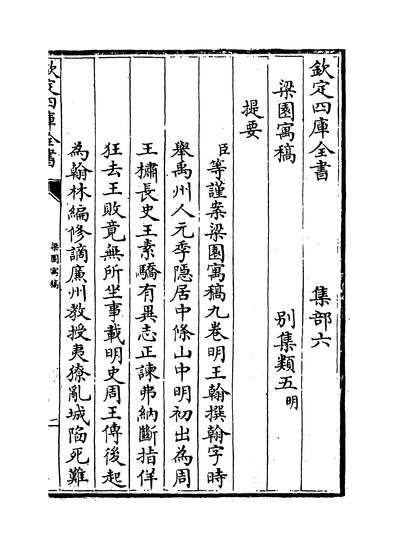 欽定四庫全書 集部六
梁園寓稿 別集類五明
提要
臣等謹案梁園寓稿九卷明王翰撰翰字時
舉禹州人元季隱居中條山中明初出為周
王橚長史王素驕有異志正諫弗納斷指佯
狂去王敗竟無所坐事載明史周王傳後起
為翰林編修謫廉州教授夷獠亂城陷死難
欽定四庫全書
梁園寓稿
一